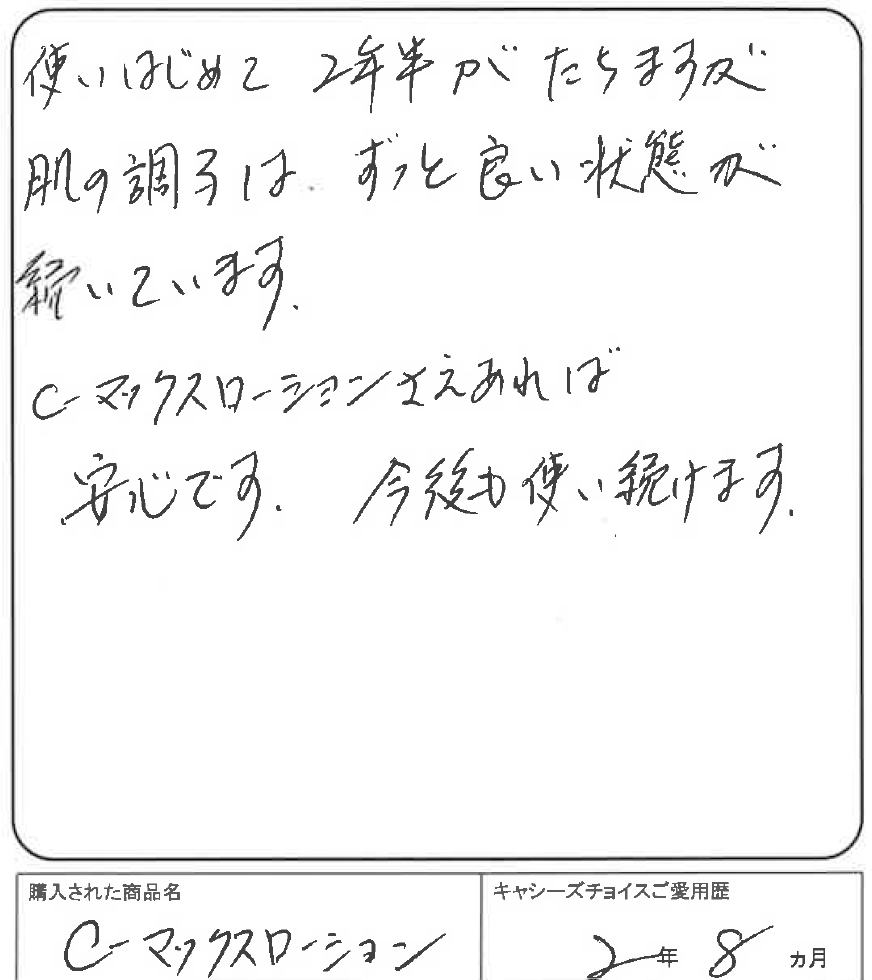 使いはじめて 2年半が たちますが
肌の調子は ずっと良い状態が
続いています.
C-マックスローションさえあれば
安心です. 今後も使い続けます.
購入された商品名
C-マックスローション
キャシーズチョイスご愛用歴
2年 8 ヵ月